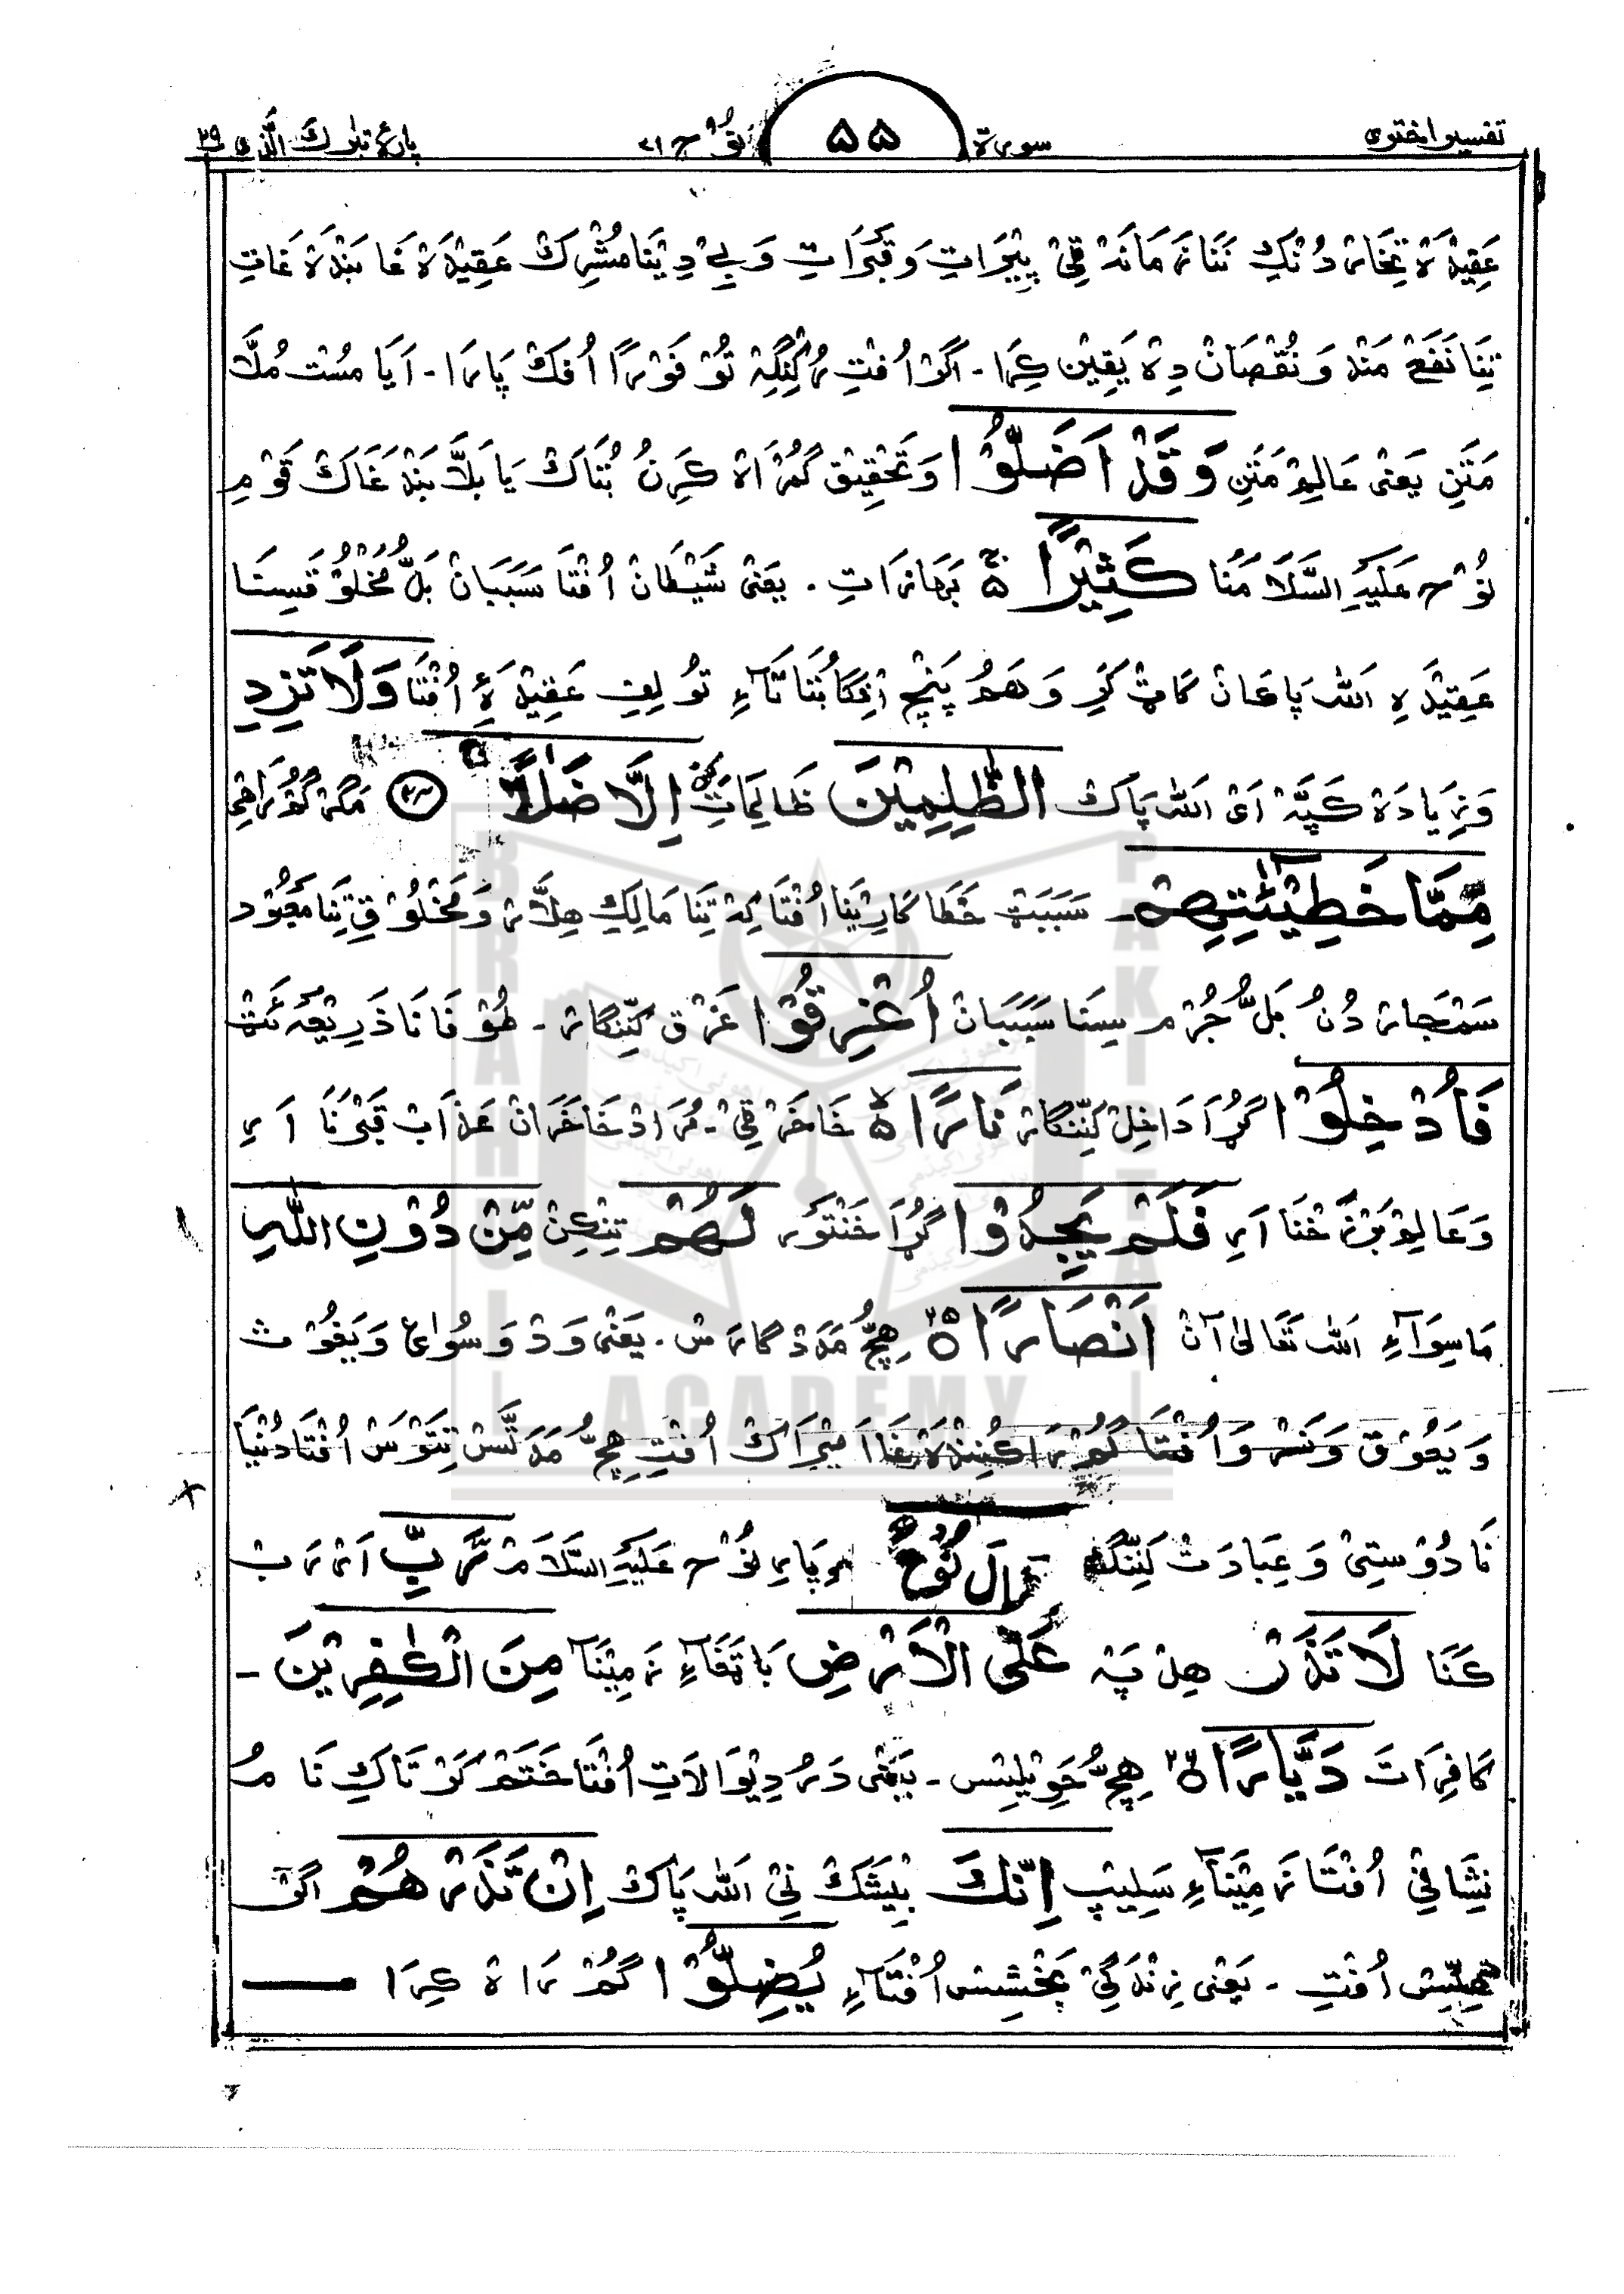 تفسیر اختری سورۃ ۵۵ نُوْح ۷۱ پارۂ تبٰرك الَّذی ۲۹
عَقِیْدَہْ تِخَارہ دُنْكِ نَنَا زَمَانَہ قِیْ پِیْرَاتِ وَ قَبَرَاتِ وَ بِےْ دِیْنَا مُشْرِكْ عَقِیْدَہْ غَا بَنْدَہْ غَاتِ
تِنَا نَفَعْ مَنْد وَ نُقْصَانْ دِہْ یَقِیْن كِرَا۔ اَگر اُفْتِ رُكِنْگِہْ تُوْ فَوْرًا اُفكْ پَارَا۔ اَیَا مُسُت مُلَّا
مَتَنِ یَعْنی عَالِمْ مَتَنِ وَقَدْ اَضَلُّوْا وَ تَحْقِیْق گُمْرَاہْ كَرِنُ بُتَاكْ یَا بَلَّا بَنْدَغَاكْ قَوْمِ
نُوْح عَلَیْہِ السَّلَامُنَا كَثِیْرًا ۵ بَہازَاتِ ۔ یَعْنی شَیْطَانْ اُفْتَا سَبَبَانْ بَلُّ مُخْلُوْقَسِنَا
عَقِیْدَہِ اَللہ پَاغَانْ گَاٹْ كَرِ وَ ہَمُ پَنْچ اُفِكَا بُتَاتَآءِ تُولِفِ عَقِیْدَہِ اُفْتَا وَلَا تَزِدِ
وَ زِیَادَہْ كَپَّہْ اَیْ اَللہ پَاكْ الظّٰلِمِیْنَ ظَالِمَاتِ اِلَّا ضَلٰلًا مَگَرْ گُمْرَاھِی
مِمَّا خَطِیْٓئٰتِہِمْ سَبَبَتْ خَطَا كَارِیْنَا اُفْتَا كِہْ تِنَا مَالِكِ ہِلَّارہ وَ مَخْلُوْقِ تِنَا مَعْبُوْد
سَمْجَارہ دُنُ بَلُّ جُرْم سِنَا سَبَبَانْ اُغْرِقُوْا غَرْق كِنِّنْگَارہ ۔ طُوْفَانَا ذَرِیْعَہ ئَتْ
فَاُدْخِلُوْا گُڑَا دَاخِلْ كِنِّنْگَارہ نَارًا ۵ خَاخَرْ قِیْ ۔ مُرَادْ خَاخَرَانْ عَذَابْ قَبْرْنَا اَرِ
وَ عَالِمْ بَرْزَخْنَا اَرِ فَلَمْ یَجِدُوْا گُڑَا خَنْتَوَرہ لَہُمْ تِنْكِنْ مِّنْ دُوْنِ اللہِ
مَاسِوَآءِ اَللہ تَعَالیٰ آنْ اَنْصَارًا ۲۵ ہِچُّ مَدَدْ گَارَسْ ۔ یَعْنی وَدْ وَ سُوَاعْ وَ یَغُوْث
وَ یَعُوْق وَ نَسْر وَ اُفْتَا گُمْرَا كُنِنْدَہْ غَا اَمِیْرَاكْ اُفْتِ ہِچُّ مَدَتَّسْ تِتَوَسْ اُفْتَا دُنْیَا
نَا دُوْسِتِیْ وَ عِبَادَتْ كِنِّنْگ وَقَالَ نُوْحٌ وَ پَارہ نُوْح عَلَیْہِ السَّلَامْ رَّبِّ اَے رَبْ
كَنَا لَا تَذَرْ ہِلْ پَہ عَلَی الْاَرْضِ بَاتَغَآءِ زَمِیْنَآ مِنَ الْكٰفِرِیْنَ ـ
كَافِرَاتَ دَیَّارًا ۲۶ ہِچُّ حَوِیْلِیْس ۔ یَعْنی دَرُ دِیْوَالَاتِ اُفْتَا خَتَمْ كَرْ تَاكِ نَامُ
نِشَانِیْ اُفْتَا زَمِیْنَآءِ سَلِیْپ اِنَّكَ بِیْشَكْ نِیْ اَللہ پَاكْ اِنْ تَذَرْہُمْ اَگَرْ
ہِلِّیس اُفْتِ ۔ یَعْنی زِنْدَگِیْ بَخْشِسِس اُفْتَآءِ یُضِلُّوْا گُمْ رَاہْ كِرَا
BRAHUI ACADEMY PAKISTAN